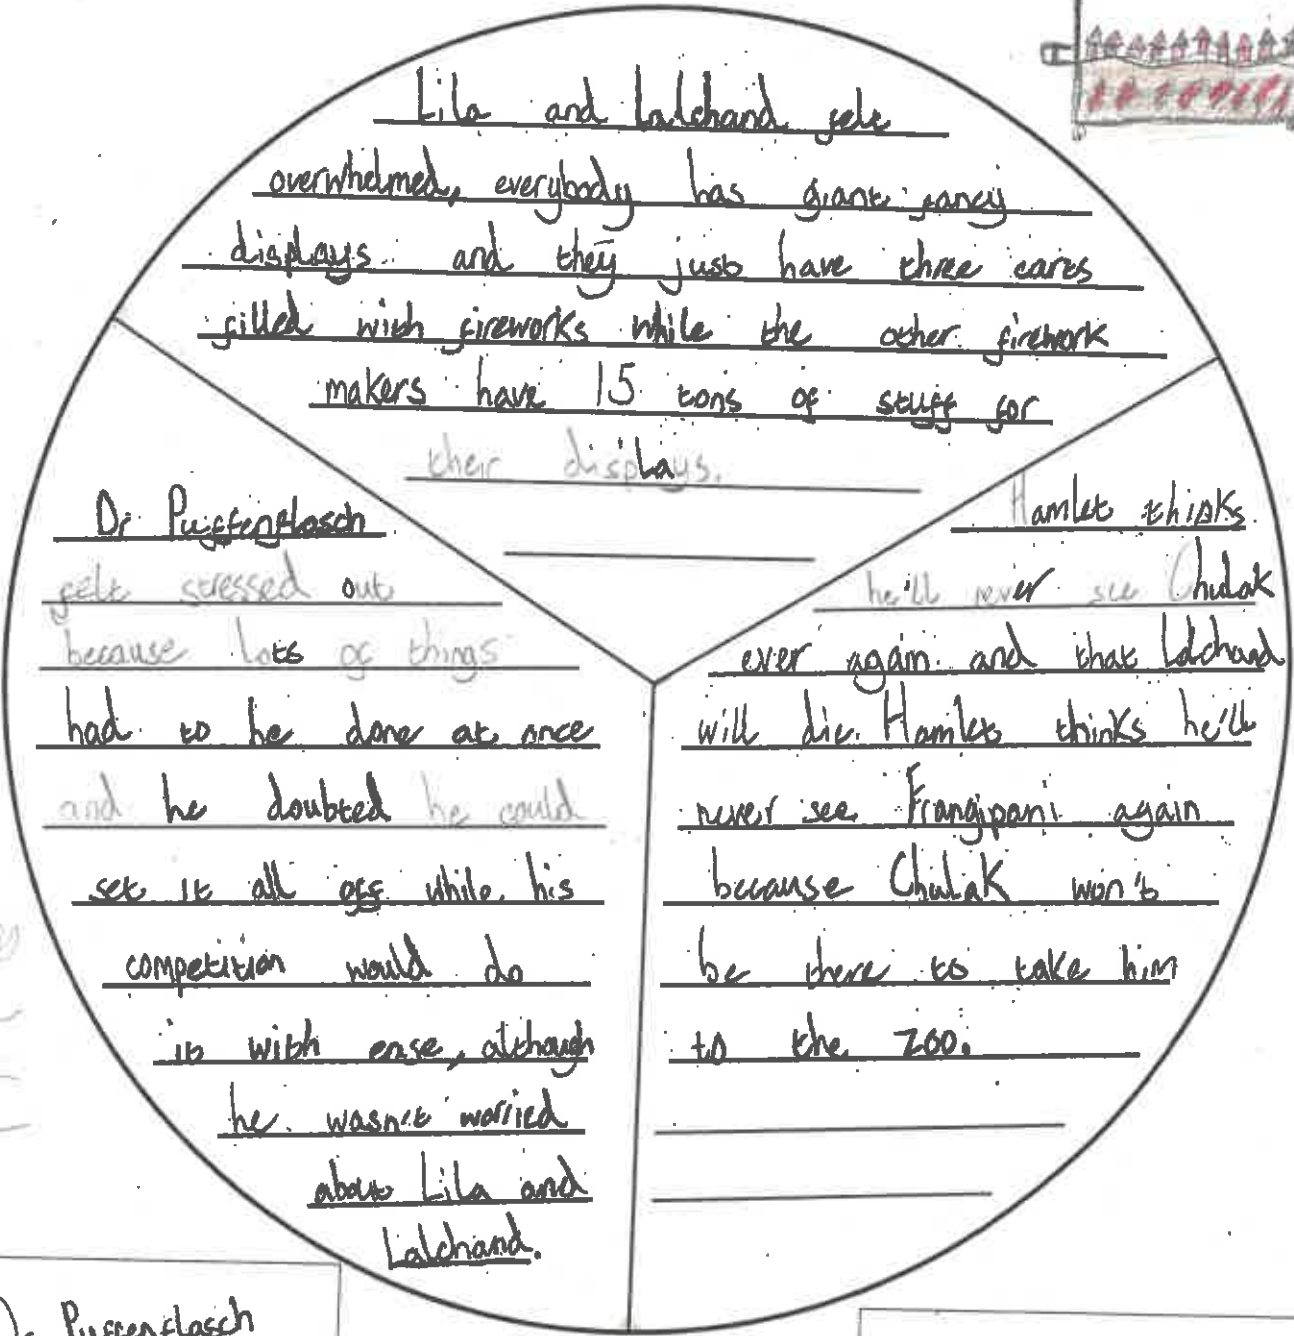 Lila and Lalchand felt
overwhelmed, everybody has giant fancy
displays and they just have three carts
filled with fireworks while the other firework
makers have 15 tons of stuff for
their displays.
Dr Puffenflasch
felt stressed out
because lots of things
had to be done at once
and he doubted he could
set it all off while his
competition would do
it with ease, although
he wasn't worried
about Lila and
Lalchand.
Hamlet thinks
he'll never see Chulak
ever again and that Lalchand
will die. Hamlet thinks he'll
never see Frangipani again
because Chulak won't
be there to take him
to the zoo.
Dr Puffenflasch